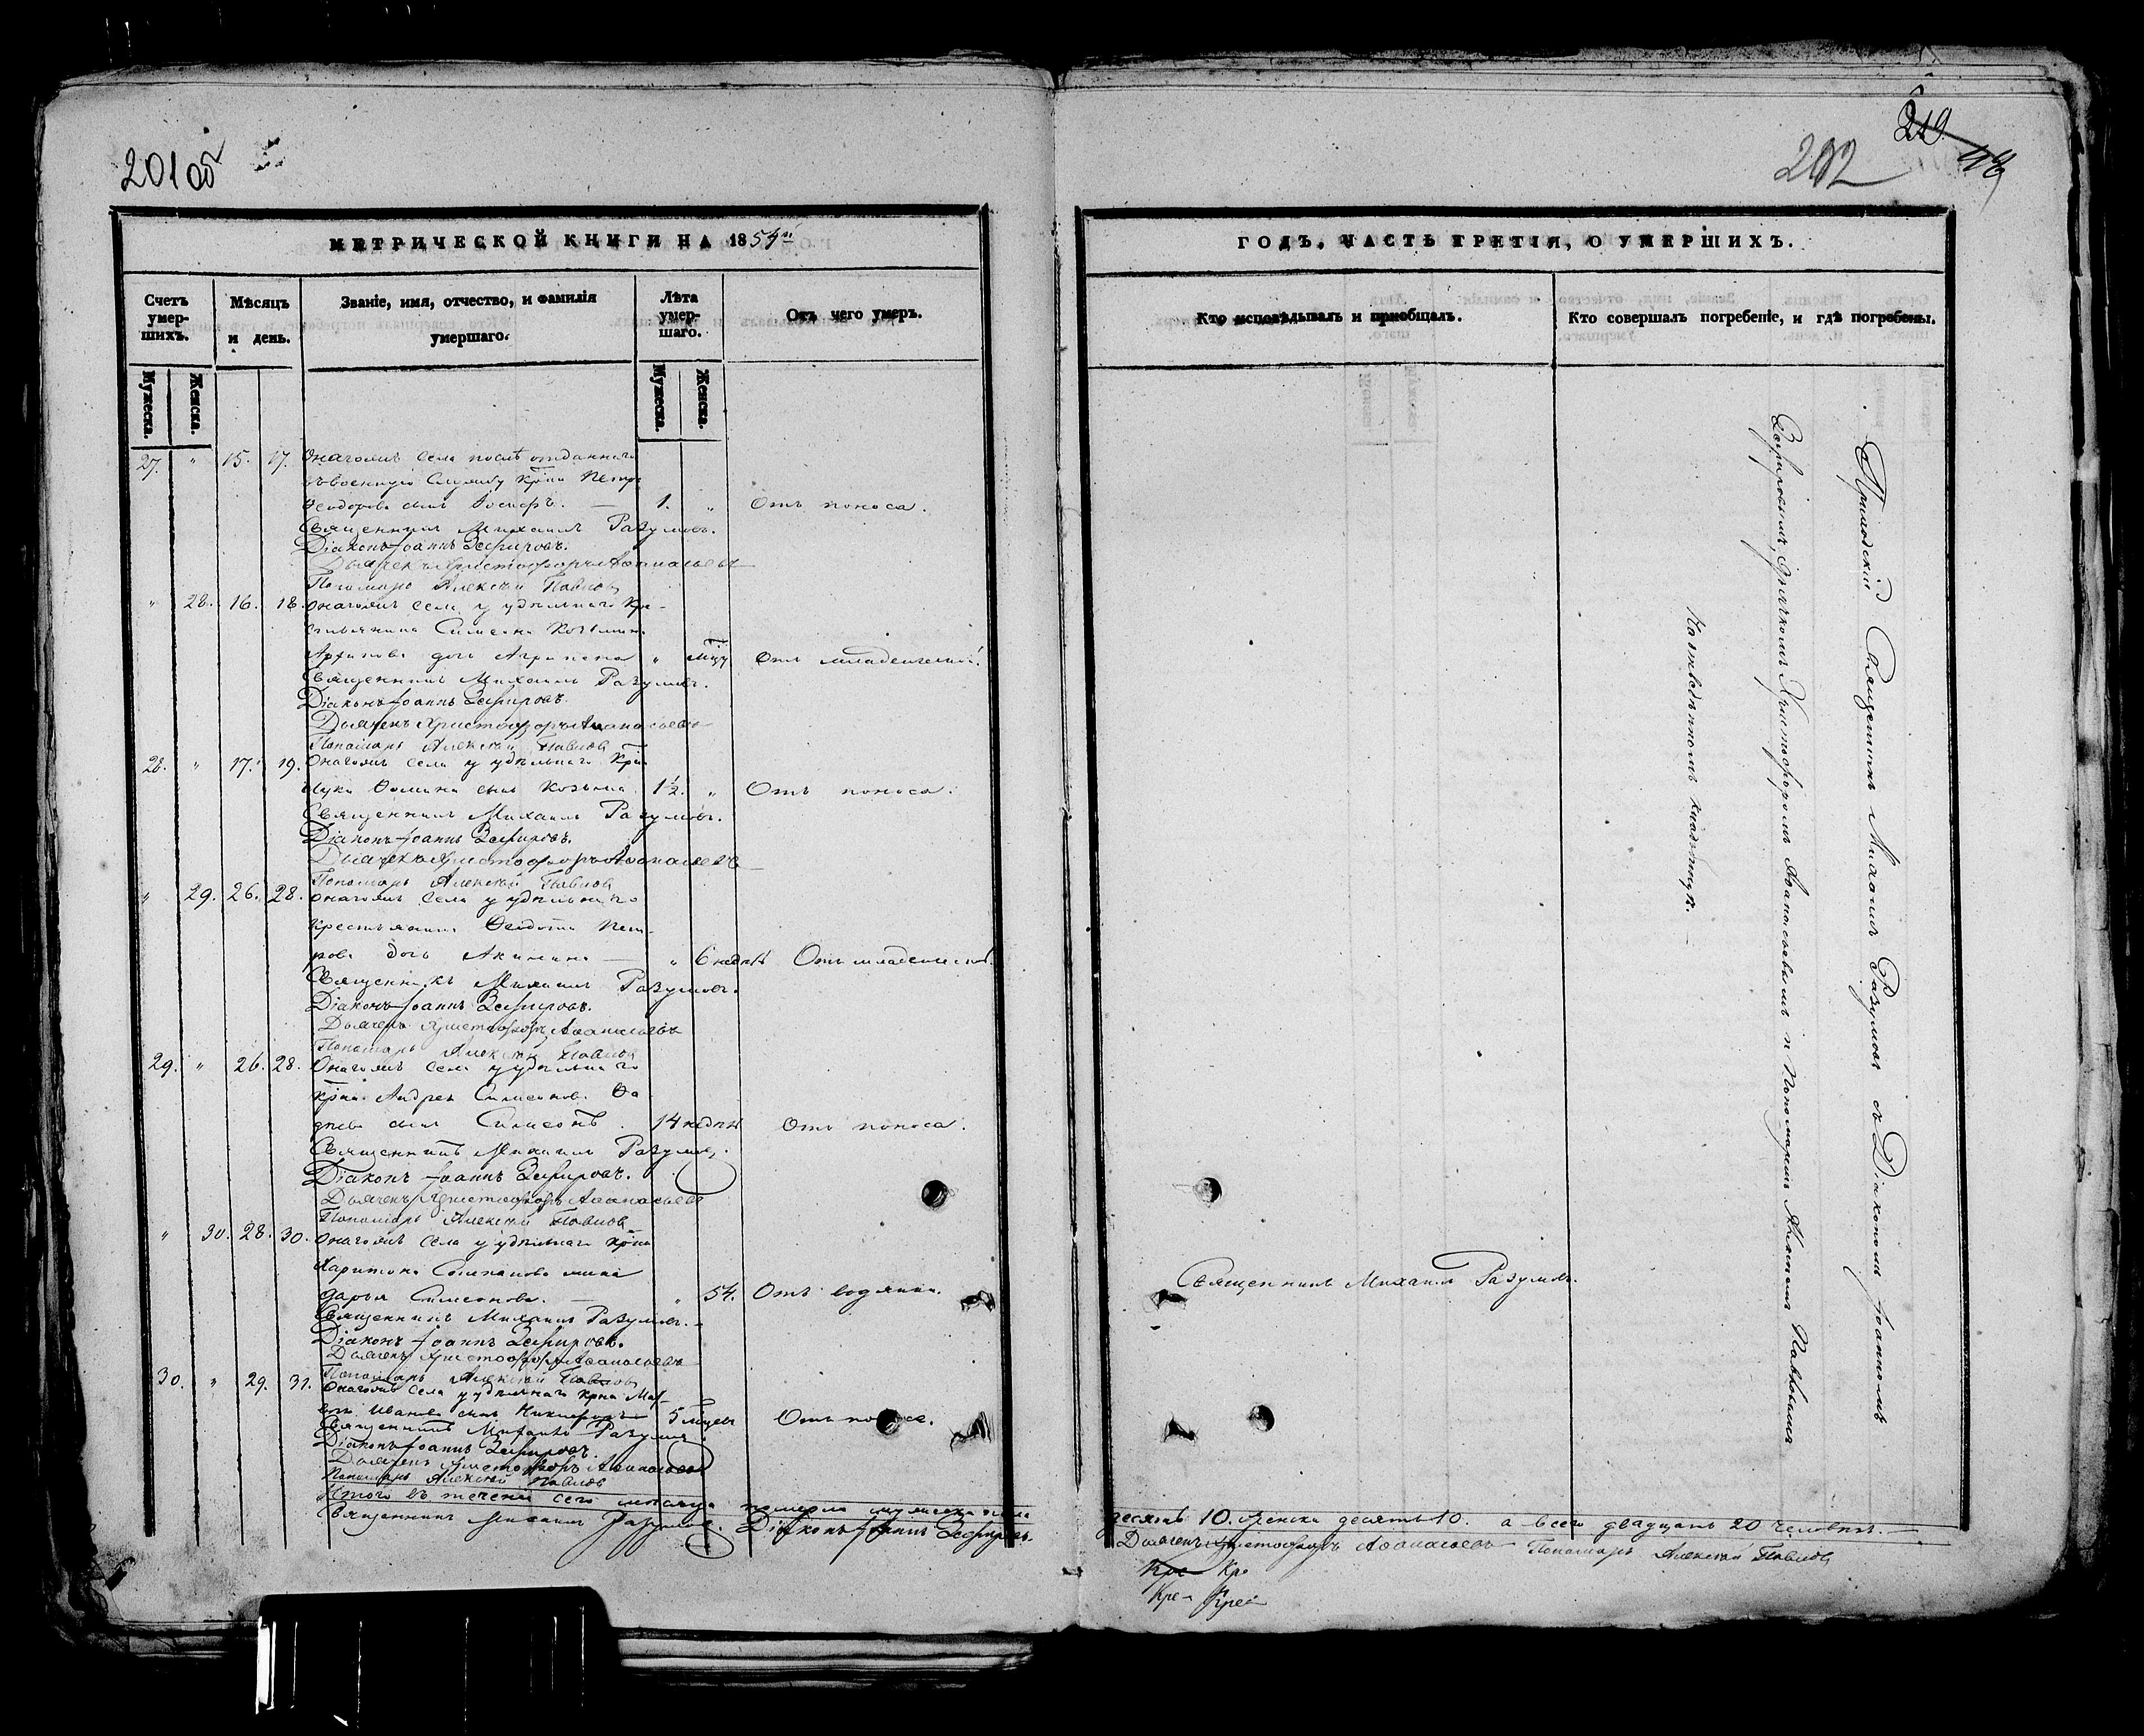 201 об
МЕТРИЧЕСКОЙ КНИГИ НА 1854й
Счетъ умер-шихъ.
Мѣсяцъ и день.
Званіе, имя, отчество, и фамилія умершаго.
Лѣта умер-шаго.
Отъ чего умеръ.
Мужеска.
Женска.
Мужеска.
Женска.
27. " 15. 17. Оначомъ села послѣ отданнаго
въ военную службу Крна Петра
Ѳеодорова сынъ Іосифъ. — 1. " Отъ поноса.
Священникъ Михаилъ Разумовъ.
Діаконъ Іоаннъ Зефировъ.
Дьячекъ Христофоръ Аѳанасьевъ
Пономарь Алексѣй Павловъ
" 28. 16. 18. села удѣльнаго Кре-
стьянина Симеона Козьмина
дочь Агрипена " Отъ младенческой.
Священникъ Михаилъ Разумовъ.
Діаконъ Іоаннъ Зефировъ.
Дьячекъ Христофоръ Аѳанасьевъ
Пономарь Алексѣй Павловъ
28. " 17. 19. села удѣльнаго Крна
Луки Ѳомина сынъ Козьма. 1½. " Отъ поноса.
Священникъ Михаилъ Разумовъ.
Діаконъ Іоаннъ Зефировъ.
Дьячекъ Христофоръ Аѳанасьевъ
Пономарь Алексѣй Павловъ
" 29. 26. 28. села удѣльнаго
крестьянина Ѳедота Пет-
рова дочь Акилина — " 6 недѣль Отъ младенческой.
Священникъ Михаилъ Разумовъ.
Діаконъ Іоаннъ Зефировъ.
Дьячекъ Христофоръ Аѳанасьевъ
Пономарь Алексѣй Павловъ
29. " 26. 28. села удѣльнаго
крна Андрея Симеонова
сынъ Симеонъ. 14 недѣль Отъ поноса.
Священникъ Михаилъ Разумовъ.
Діаконъ Іоаннъ Зефировъ.
Дьячекъ Христофоръ Аѳанасьевъ
Пономарь Алексѣй Павловъ
" 30. 28. 30. села удѣльнаго крна
Харитона Степанова жена
Дарья Симеонова. — " 54. Отъ водянки.
Священникъ Михаилъ Разумовъ.
Діаконъ Іоаннъ Зефировъ.
Дьячекъ Христофоръ Аѳанасьевъ
Пономарь Алексѣй Павловъ
30. " 29. 31. села удѣльнаго крна Мат-
вея Иванова сынъ Никифоръ 5 Отъ поноса.
Священникъ Михаилъ Разумовъ
Діаконъ Іоаннъ Зефировъ.
Дьячекъ Христофоръ Аѳанасьевъ
Пономарь Алексѣй Павловъ
Итого въ теченіи сего мѣсяца померло мужеска пола
Священникъ Михаилъ Разумовъ. Діаконъ Іоаннъ Зефировъ.
219
202
ГОДЪ, ЧАСТЬ ТРЕТІЯ, О УМЕРШИХЪ.
Кто исповѣдывалъ и приобщалъ.
Кто совершалъ погребеніе, и гдѣ погребены.
Приходскій Священникъ Михаилъ Разумовъ съ Діакономъ Іоанномъ
Зефировымъ, дьячкомъ Христофоромъ Аѳанасьевымъ и Пономаремъ Алексѣемъ Павловымъ
На отведенномъ кладбищѣ.
Священникъ Михаилъ Разумовъ.
десять 10. женска десять 10. а всего двадцать 20 человѣкъ. —
Дьячекъ Христофоръ Аѳанасьевъ Пономарь Алексѣй Павловъ
Кре Кре
Кре Кре